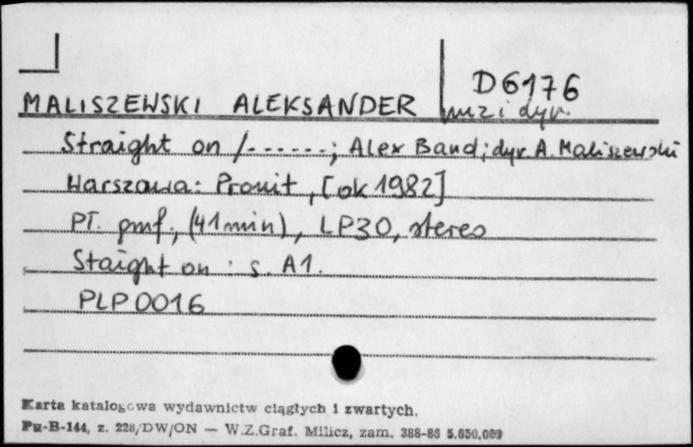 D6176
MALISZEWSKI ALEKSANDER muz i dyr.
Straight on /------; Alex Band; dyr. A. Maliszewski
Warszawa: Pronit, [ok 1982]
PT. pmf., (41 min), LP30, stereo
Staight on : s. A1.
PLP0016
Karta katalogowa wydawnictw ciągłych i zwartych.
Pu-B-144, z. 228/DW/ON — W.Z.Graf. Milicz, zam. 388-86 5.650.000